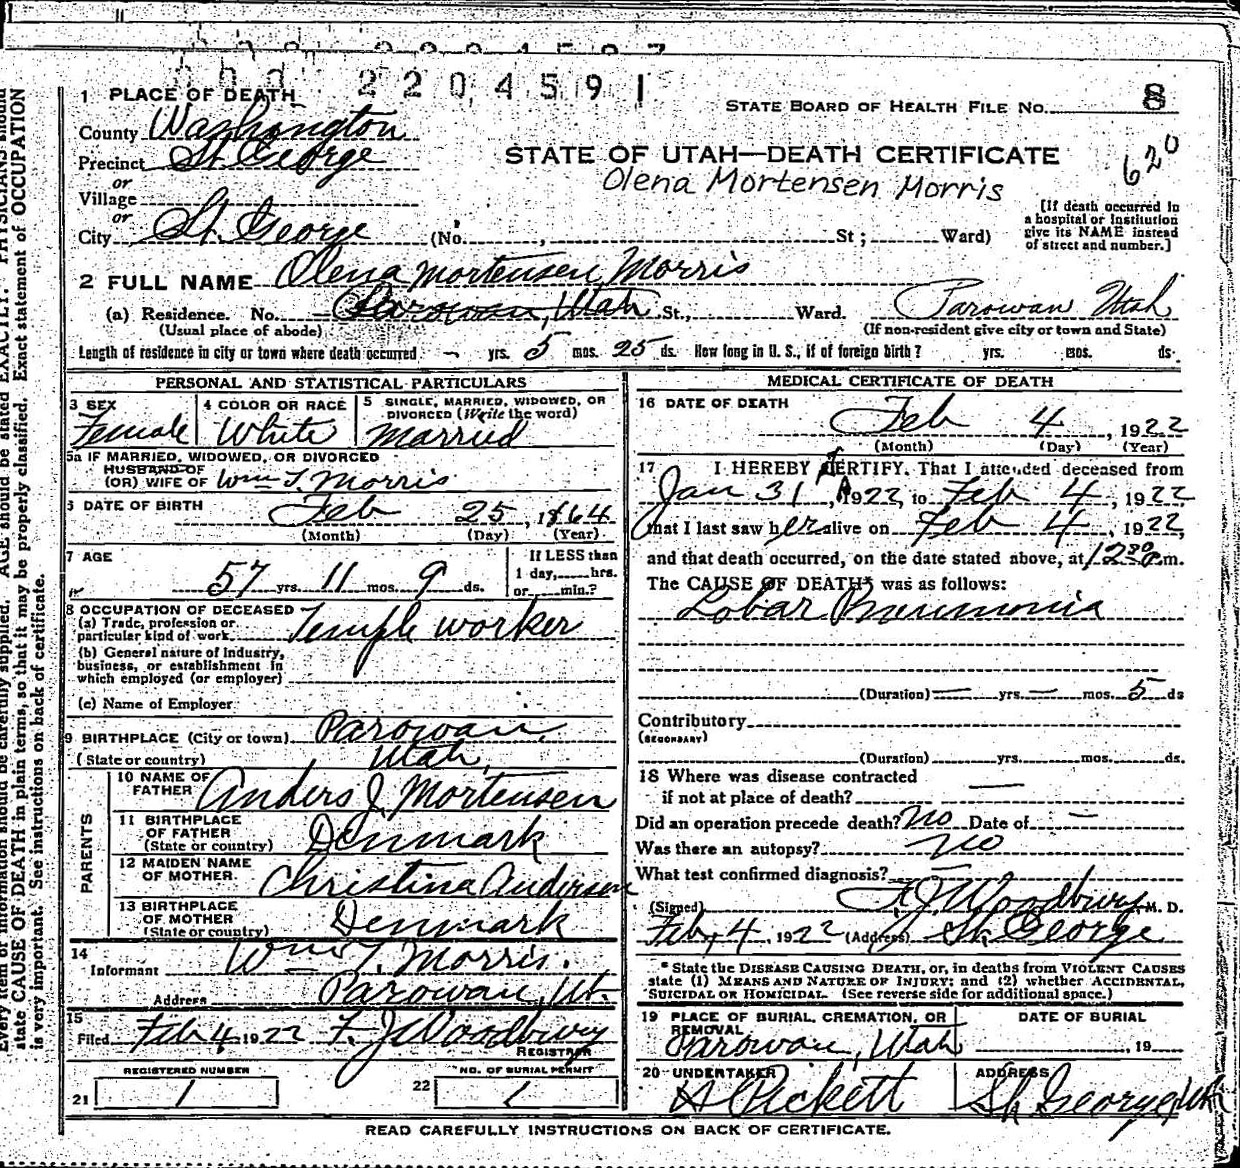 2204591
1 PLACE OF DEATH
STATE BOARD OF HEALTH FILE NO. 8
County Washington
Precinct St. George
620
STATE OF UTAH—DEATH CERTIFICATE
Olena Mortensen Morris
or
Village
or
City St. George (No. , St ; Ward)
[If death occurred in
a hospital or institution
give its NAME instead
of street and number.]
2 FULL NAME Olena Mortensen Morris
(a) Residence. No. Parowan, Utah St., Ward. Parowan Utah
(Usual place of abode) (If non-resident give city or town and State)
Length of residence in city or town where death occurred – yrs. 5 mos. 25 ds. How long in U. S., if of foreign birth? yrs. mos. ds.
PERSONAL AND STATISTICAL PARTICULARS
3 SEX 4 COLOR OR RACE 5 SINGLE, MARRIED, WIDOWED, OR
DIVORCED (Write the word)
Female White Married
5a IF MARRIED, WIDOWED, OR DIVORCED
HUSBAND OF
(OR) WIFE OF Wm T. Morris
6 DATE OF BIRTH Feb 25, 1864
(Month) (Day) (Year)
7 AGE If LESS than
1 day, hrs.
57 yrs. 11 mos. 9 ds. or min.?
8 OCCUPATION OF DECEASED
(a) Trade, profession or
particular kind of work Temple worker
(b) General nature of industry,
business, or establishment in
which employed (or employer)
(c) Name of Employer
9 BIRTHPLACE (City or town) Parowan,
(State or country) Utah,
PARENTS
10 NAME OF
FATHER Anders J. Mortensen
11 BIRTHPLACE
OF FATHER
(State or country) Denmark
12 MAIDEN NAME
OF MOTHER Christina Anderson
13 BIRTHPLACE
OF MOTHER
(State or country) Denmark
14
Informant Wm T. Morris.
Address Parowan, Ut.
15
Filed Feb 4, 1922 F. J. Woodbury
REGISTRAR
REGISTERED NUMBER NO. OF BURIAL PERMIT
21 1 22 1
MEDICAL CERTIFICATE OF DEATH
16 DATE OF DEATH
Feb 4, 1922
(Month) (Day) (Year)
17 I HEREBY CERTIFY, That I attended deceased from
Jan 31, 1922, to Feb 4, 1922
that I last saw her alive on Feb 4, 1922,
and that death occurred, on the date stated above, at m.
The CAUSE OF DEATH* was as follows:
Lobar Pneumonia
(Duration) — yrs. — mos. 5 ds
Contributory
(SECONDARY)
(Duration) yrs. mos. ds.
18 Where was disease contracted
if not at place of death? —
Did an operation precede death? No Date of –
Was there an autopsy? No
What test confirmed diagnosis?
(Signed) F. J. Woodbury, M. D.
Feb, 4, 1922 (Address) St. George
* State the DISEASE CAUSING DEATH, or, in deaths from VIOLENT CAUSES
state (1) MEANS AND NATURE OF INJURY; and (2) whether ACCIDENTAL,
SUICIDAL OR HOMICIDAL. (See reverse side for additional space.)
19 PLACE OF BURIAL, CREMATION, OR DATE OF BURIAL
REMOVAL
Parowan, Utah , 19
20 UNDERTAKER ADDRESS
A Pickett St. George, Utah
READ CAREFULLY INSTRUCTIONS ON BACK OF CERTIFICATE.
Every item of information should be carefully supplied. AGE should be stated EXACTLY. PHYSICIANS should
state CAUSE OF DEATH in plain terms, so that it may be properly classified. Exact statement of OCCUPATION
is very important. See instructions on back of certificate.